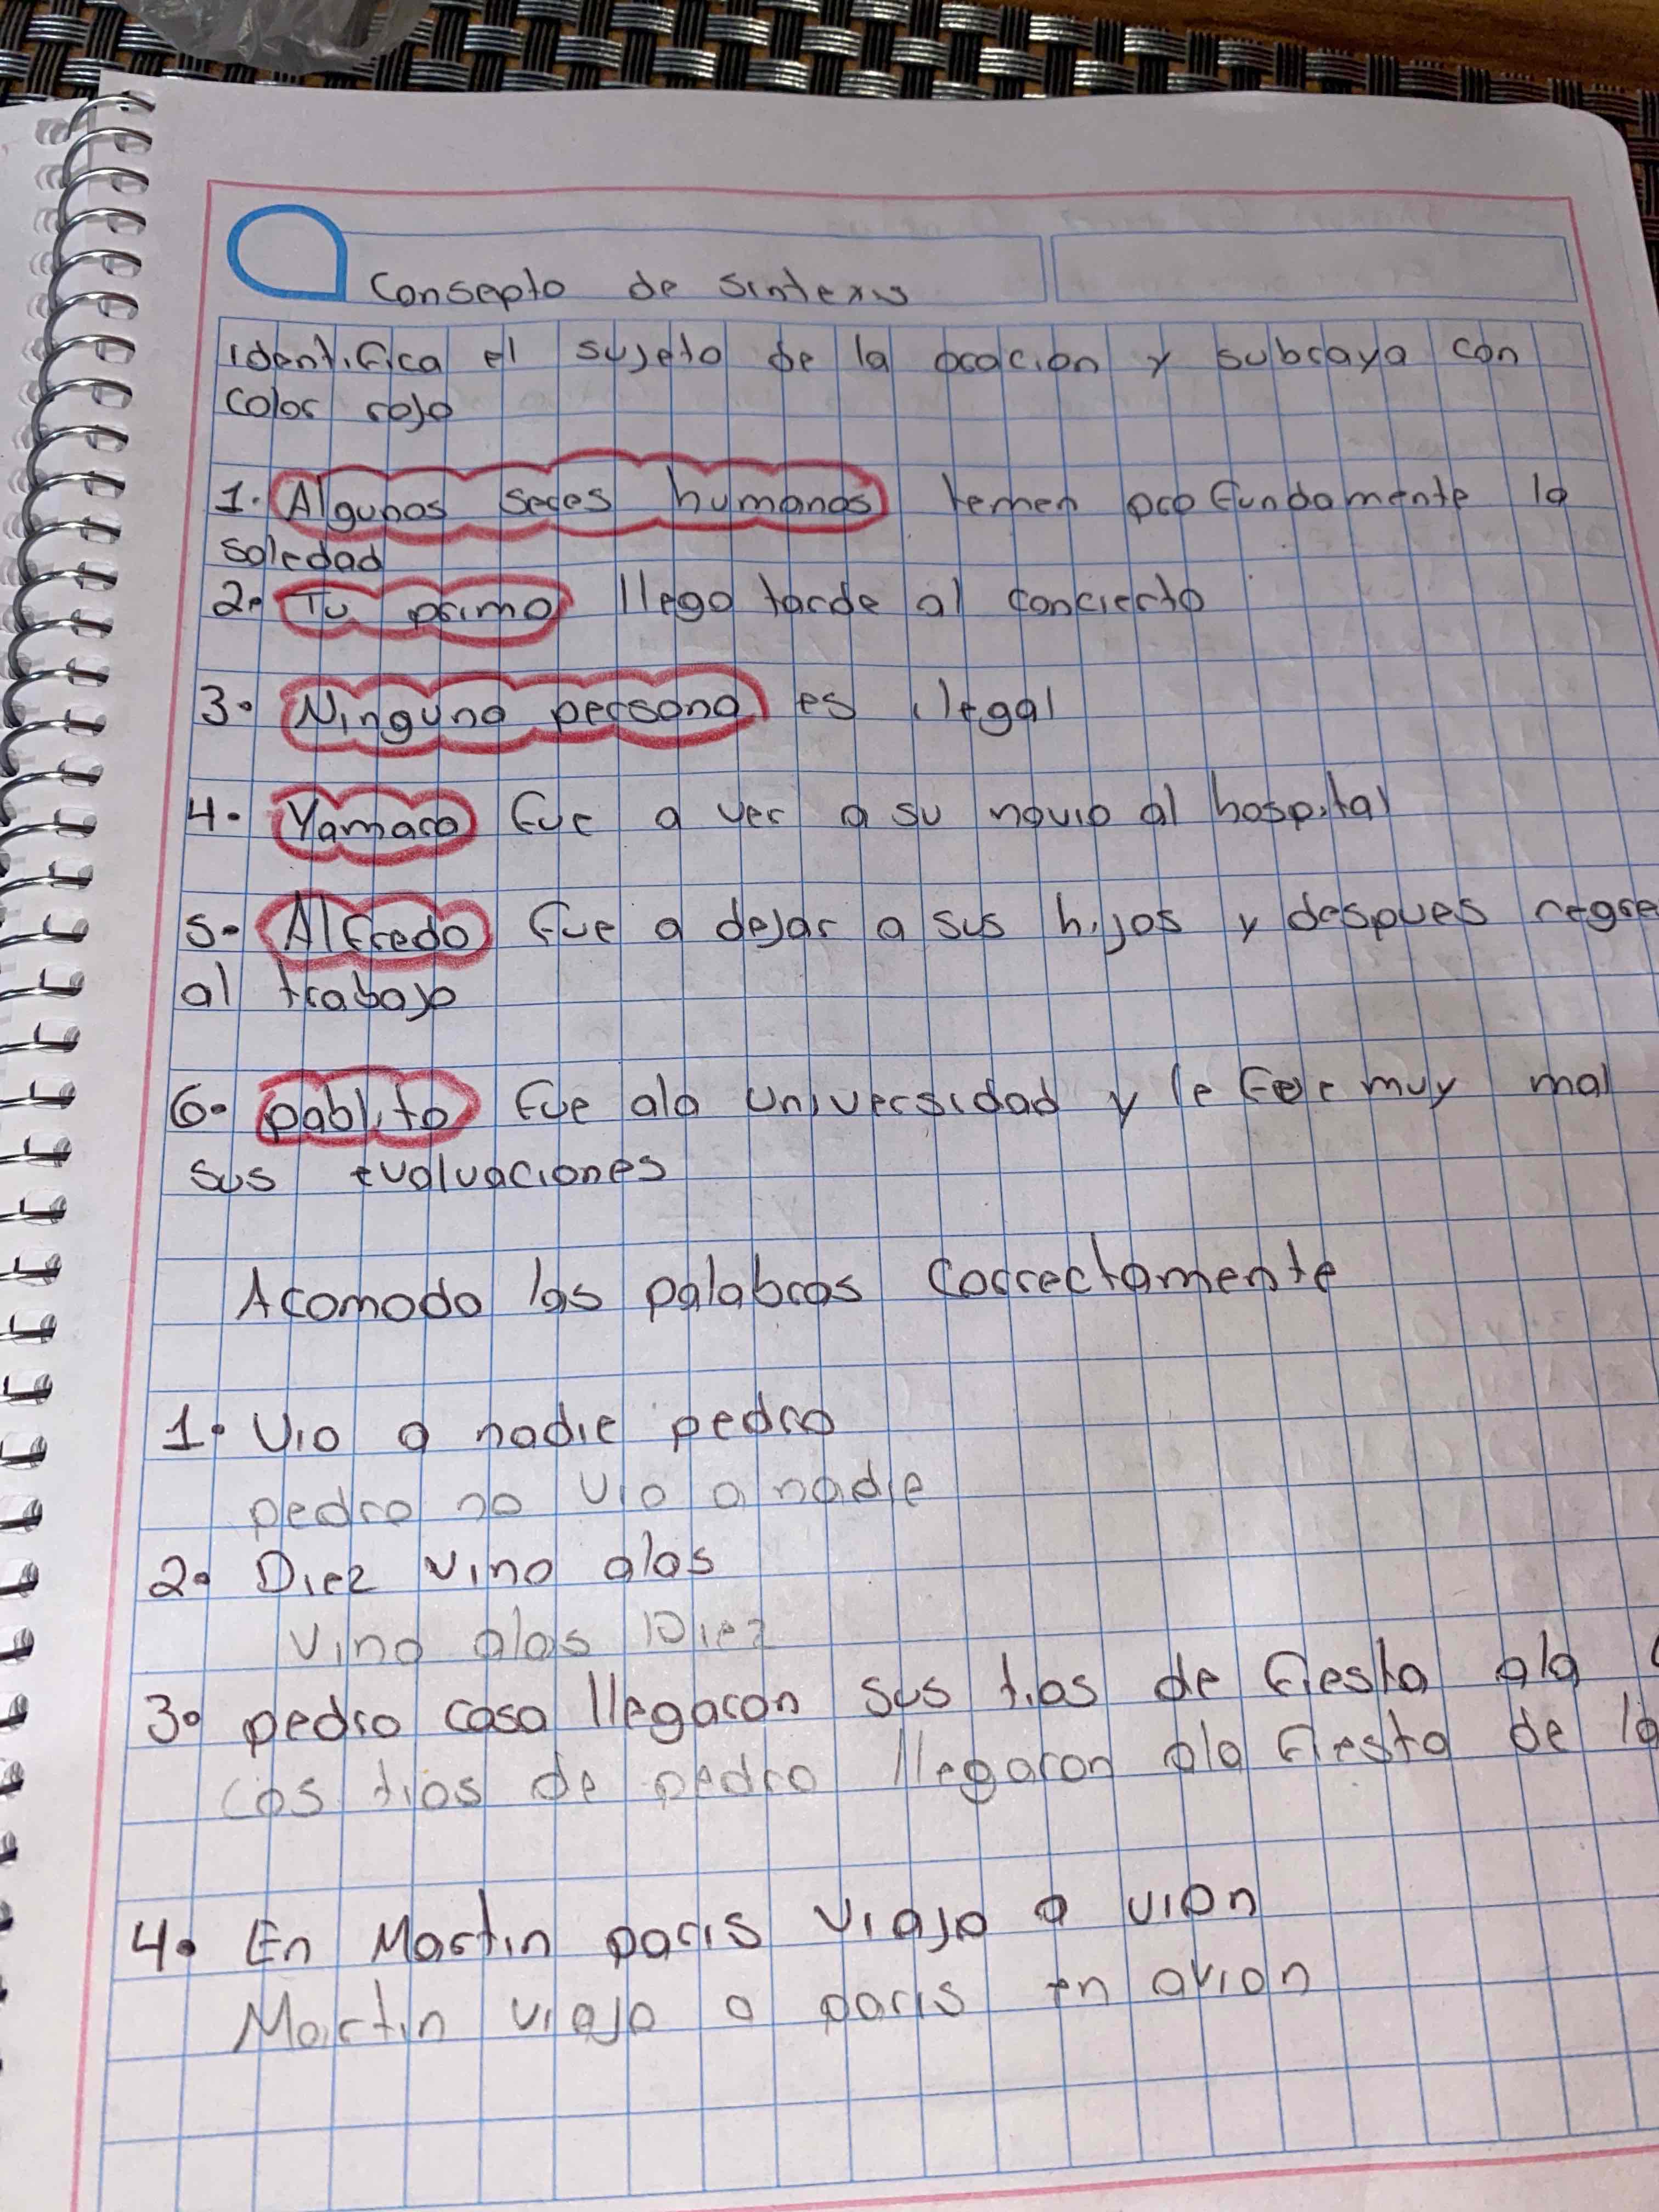 Consepto de sintexis
identifica el sujeto de la oracion y subraya con
color rojo
1. Algunos seres humanos temen profundamente la
soledad
2. Tu primo llego tarde al concierto
3. Ninguna persona es ilegal
4. Yamaro fue a ver a su novio al hospital
5. Alfredo fue a dejar a sus hijos y despues regre
al trabajo
6. pablito fue ala universidad y le fue muy mal
sus evaluaciones
Acomodo las palabras correctamente
1. Vio a nadie pedro
pedro no vio a nadie
2. Diez vino alas
Vino alas Diez
3. pedro casa llegaron sus tios de fiesta ala
Los tios de pedro llegaron ala fiesta de la
4. En Martin paris viajo a vion
Martin viajo a paris en avion